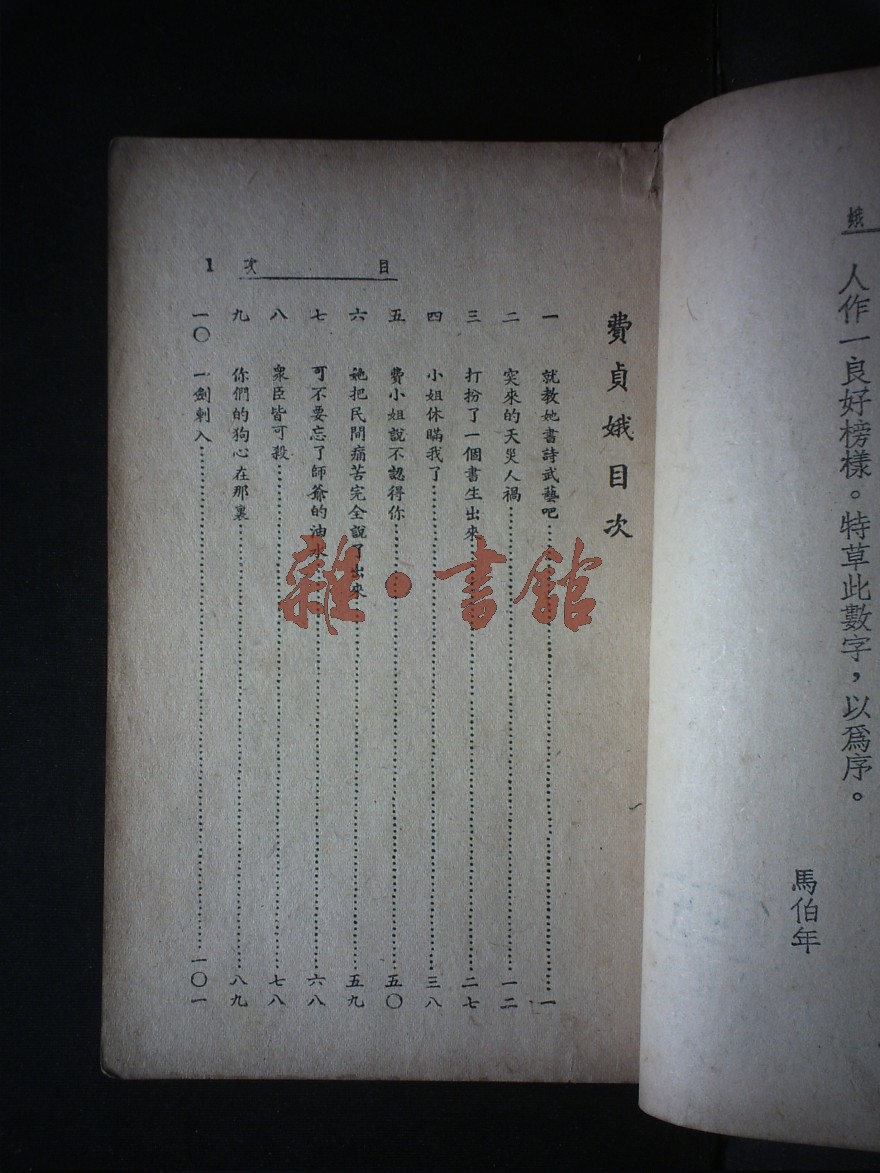 娥
人作一良好榜樣。特草此數字，以爲序。
馬伯年
目次 1
費貞娥目次
一 就教她書詩武藝吧……一
二 突來的天災人禍……一二
三 打扮了一個書生出來……二七
四 小姐休瞞我了……三八
五 費小姐說不認得你……五〇
六 她把民間痛苦完全說了出來……五九
七 可不要忘了師爺的油水……六八
八 衆臣皆可殺……七八
九 你們的狗心在那裏……八九
一〇 一劍刺入……一〇一
雜·書館